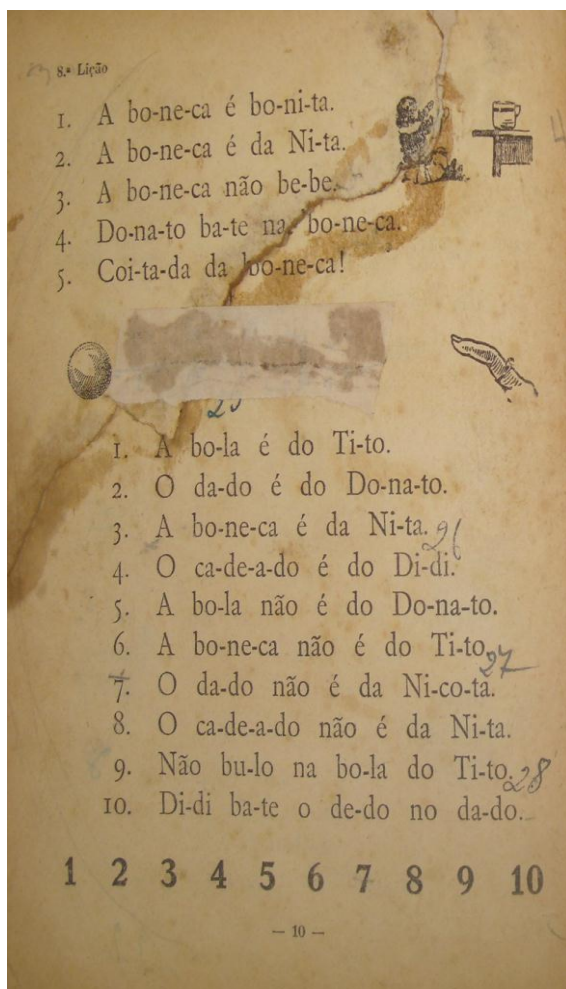 8.ª Lição
1. A bo-ne-ca é bo-ni-ta.
2. A bo-ne-ca é da Ni-ta.
3. A bo-ne-ca não be-be.
4. Do-na-to ba-te na bo-ne-ca.
5. Coi-ta-da da bo-ne-ca!
25
1. A bo-la é do Ti-to.
2. O da-do é do Do-na-to.
3. A bo-ne-ca é da Ni-ta. 26
4. O ca-de-a-do é do Di-di.
5. A bo-la não é do Do-na-to.
6. A bo-ne-ca não é do Ti-to. 27
7. O da-do não é da Ni-co-ta.
8. O ca-de-a-do não é da Ni-ta.
9. Não bu-lo na bo-la do Ti-to. 28
10. Di-di ba-te o de-do no da-do.
1 2 3 4 5 6 7 8 9 10
— 10 —